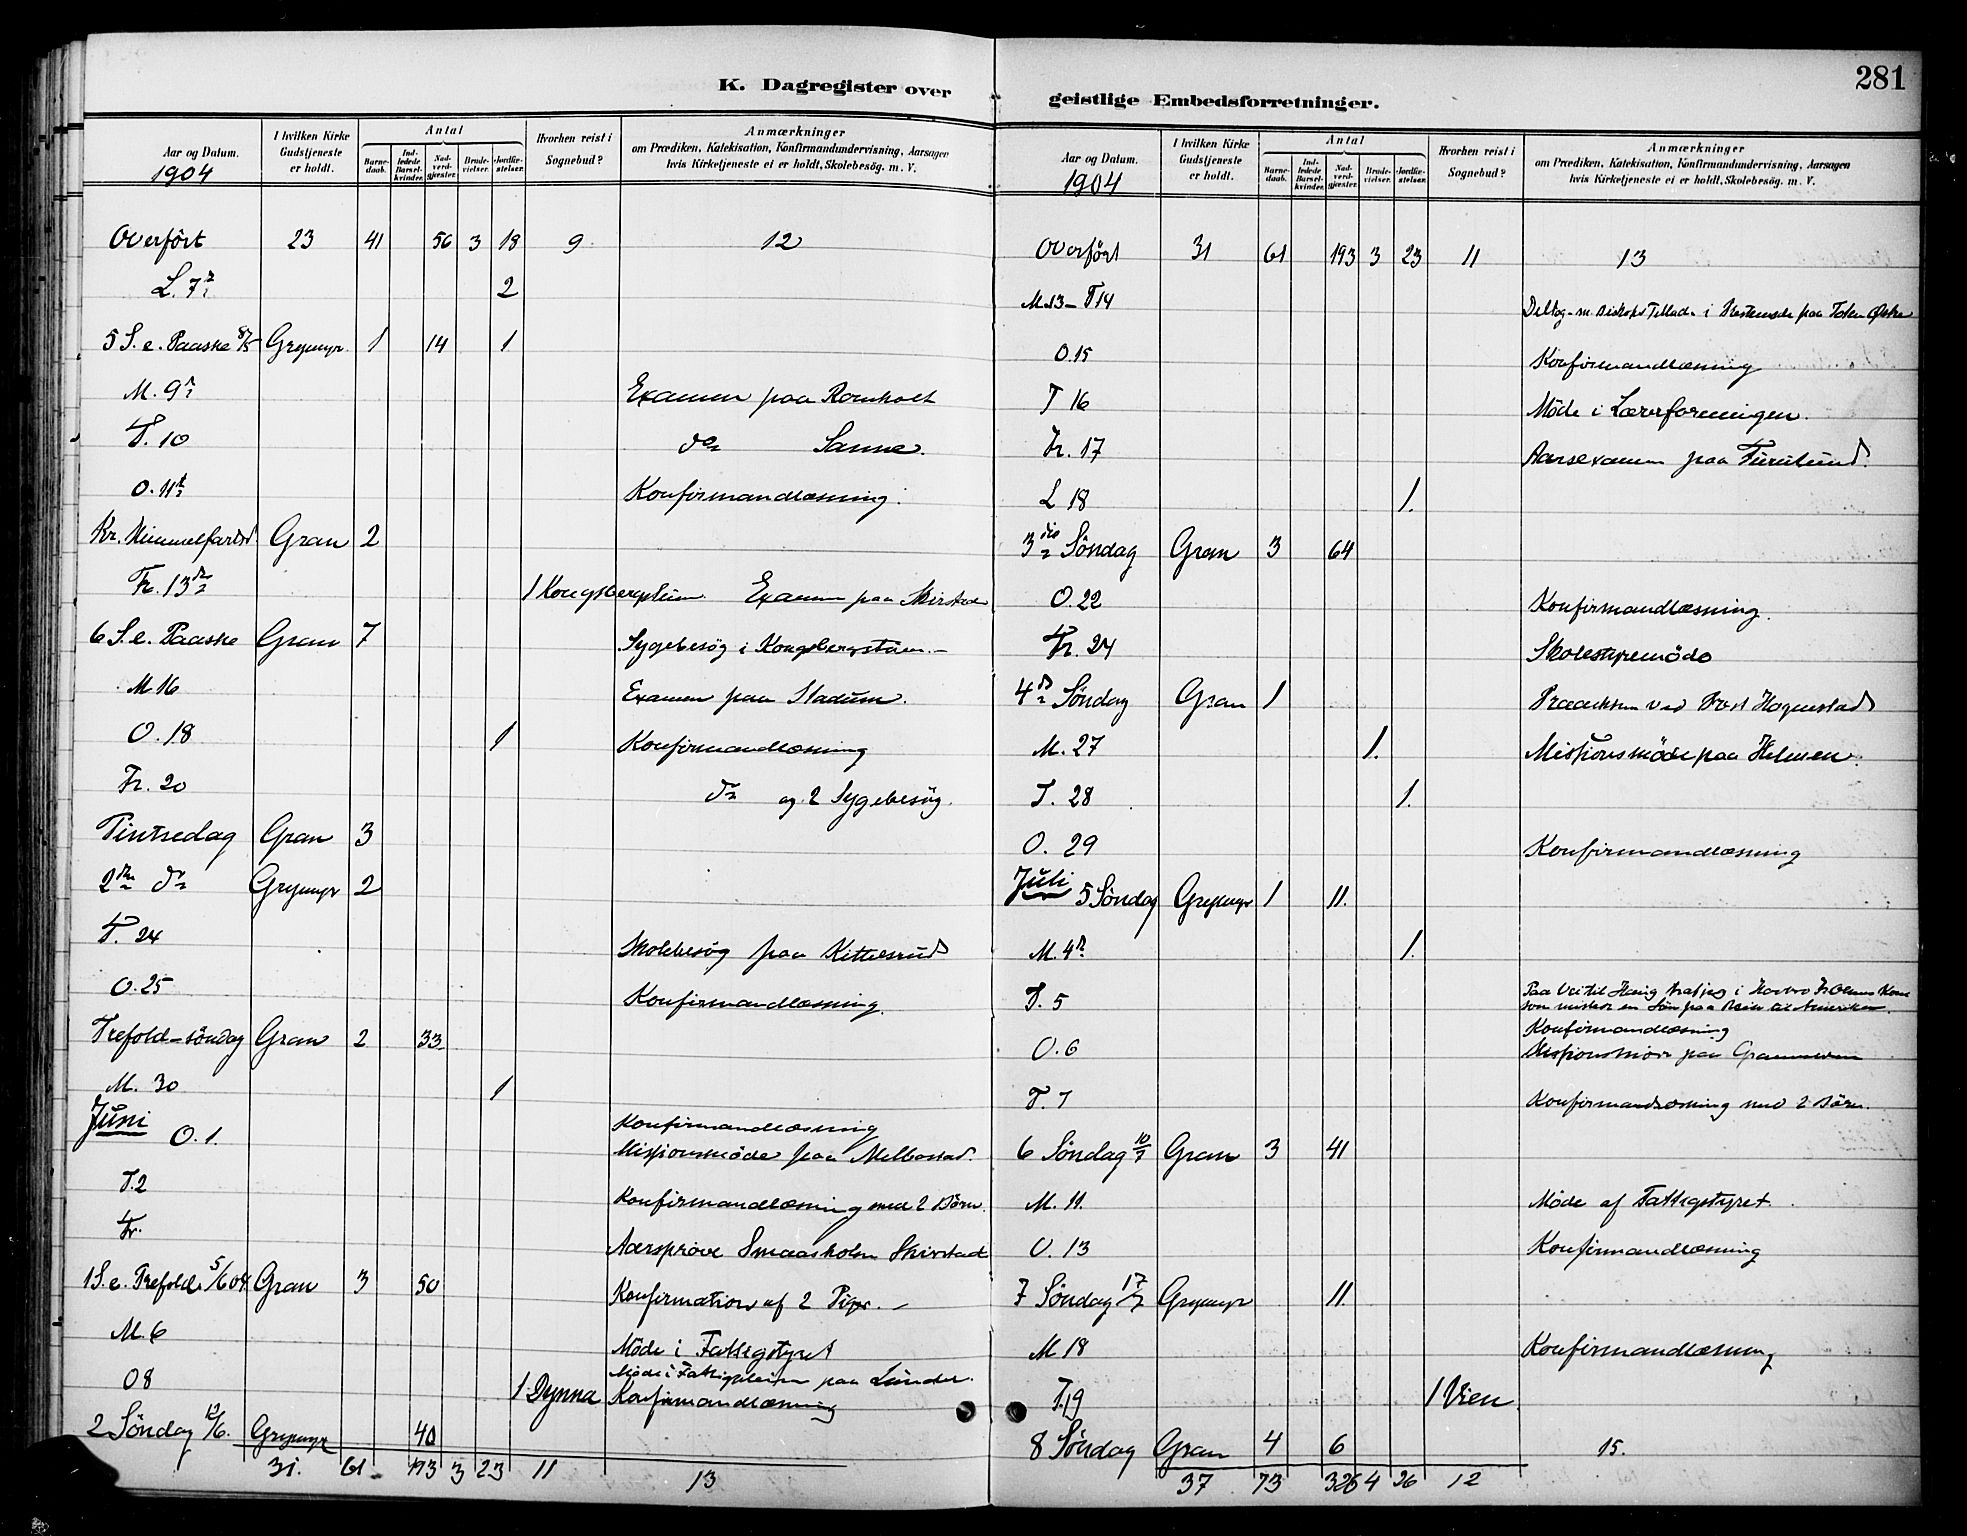 K. Dagregister over
Aar og Datum.
1904
I hvilken Kirke Gudstjeneste er holdt.
Antal
Barne-daab.
Ind-ledede Barsel-kvinder.
Nad-verd-gjæster.
Brude-vielser.
Jordfæ-stelser.
Hvorhen reist i Sognebud?
Anmærkninger
om Prædiken, Katekisation, Konfirmandundervisning, Aarsagen
hvis Kirketjeneste ei er holdt, Skolebesøg. m. V.
Overført 23 41 56 3 18 9 12
L. 7de 2
5 S. e. Paaske 8/5 Grymyr 1 14 1
M. 9de Examen paa Romholt
T. 10 do Sanne.
O. 11te Konfirmandlæsning.
Kr. Himmelfartsd. Gran 2
Fr. 13de 1 Kongsbergstuen Examen paa Skirstad
6 S. e. Paaske Gran 7 Sygebesøg i Kongsbergstuen.
M 16 Examen paa Stadum.
O. 18 1 Konfirmandlæsning
Fr. 20 do og 2 Sygebesøg.
Pintsedag Gran 3
2den do Grymyr 2
T. 24 Skolebesøg paa Kittelsrud
O. 25 Konfirmandlæsning.
Trefold-søndag Gran 2 33
M. 30 1
Juni O. 1. Konfirmandlæsning
Missionsmøde paa Melbostad.
T. 2 Konfirmandlæsning med 2 Børn.
Fr. Aarsprøve Smaaskolen Skirstad
1 S. e. Trefold. 5/6 04. Gran 3 50 Konfirmation af 2 Piger.
M. 6 Møde i Fattigstyret
O 8 1 Dynna Møde i Fattigpleien paa Lunder.
Konfirmandlæsning
2 Søndag 12/6. Grymyr 40
31. 61 193 3 23 11 13
281
geistlige Embedsforretninger.
Aar og Datum.
1904
I hvilken Kirke Gudstjeneste er holdt.
Antal
Barne-daab.
Ind-ledede Barsel-kvinder.
Nad-verd-gjæster.
Brude-vielser.
Jordfæ-stelser.
Hvorhen reist i Sognebud?
Anmærkninger
om Prædiken, Katekisation, Konfirmandundervisning, Aarsagen
hvis Kirketjeneste ei er holdt, Skolebesøg. m. V.
Overført 31 61 193 3 23 11 13
M. 13 - T 14 Deltog m. Biskops Tillad. i paa Toten
O. 15 Konfirmandlæsning
T 16 Møde i Lærerforeningen.
Fr. 17 Aarsexamen paa Furulund.
L 18 1.
3die Søndag Gran 3 64
O. 22 Konfirmandlæsning.
Fr. 24 Skolestyremøde
4de Søndag Gran 1 ved Hagenstad
M. 27 1. Missionsmøde paa Helmen.
T. 28 1.
O. 29 Konfirmandlæsning
Juli 5 Søndag Grymyr 1 11.
M. 4de 1.
T. 5 Paa Vei til Haug i
som mistede en Søn paa Reise til Amerika.
Konfirmandlæsning
O. 6 Missionsmøde paa
T. 7 Konfirmandlæsning med 2 Børn.
6 Søndag 10/7 Gran 3 41
M. 11. Møde af Fattigstyret.
O. 13 Konfirmandlæsning
7 Søndag 17/7 Grymyr 11.
M 18 Konfirmandlæsning
T. 19 1 Vien.
8 Søndag Gran 4 6 15.
37 73 326 4 26 12